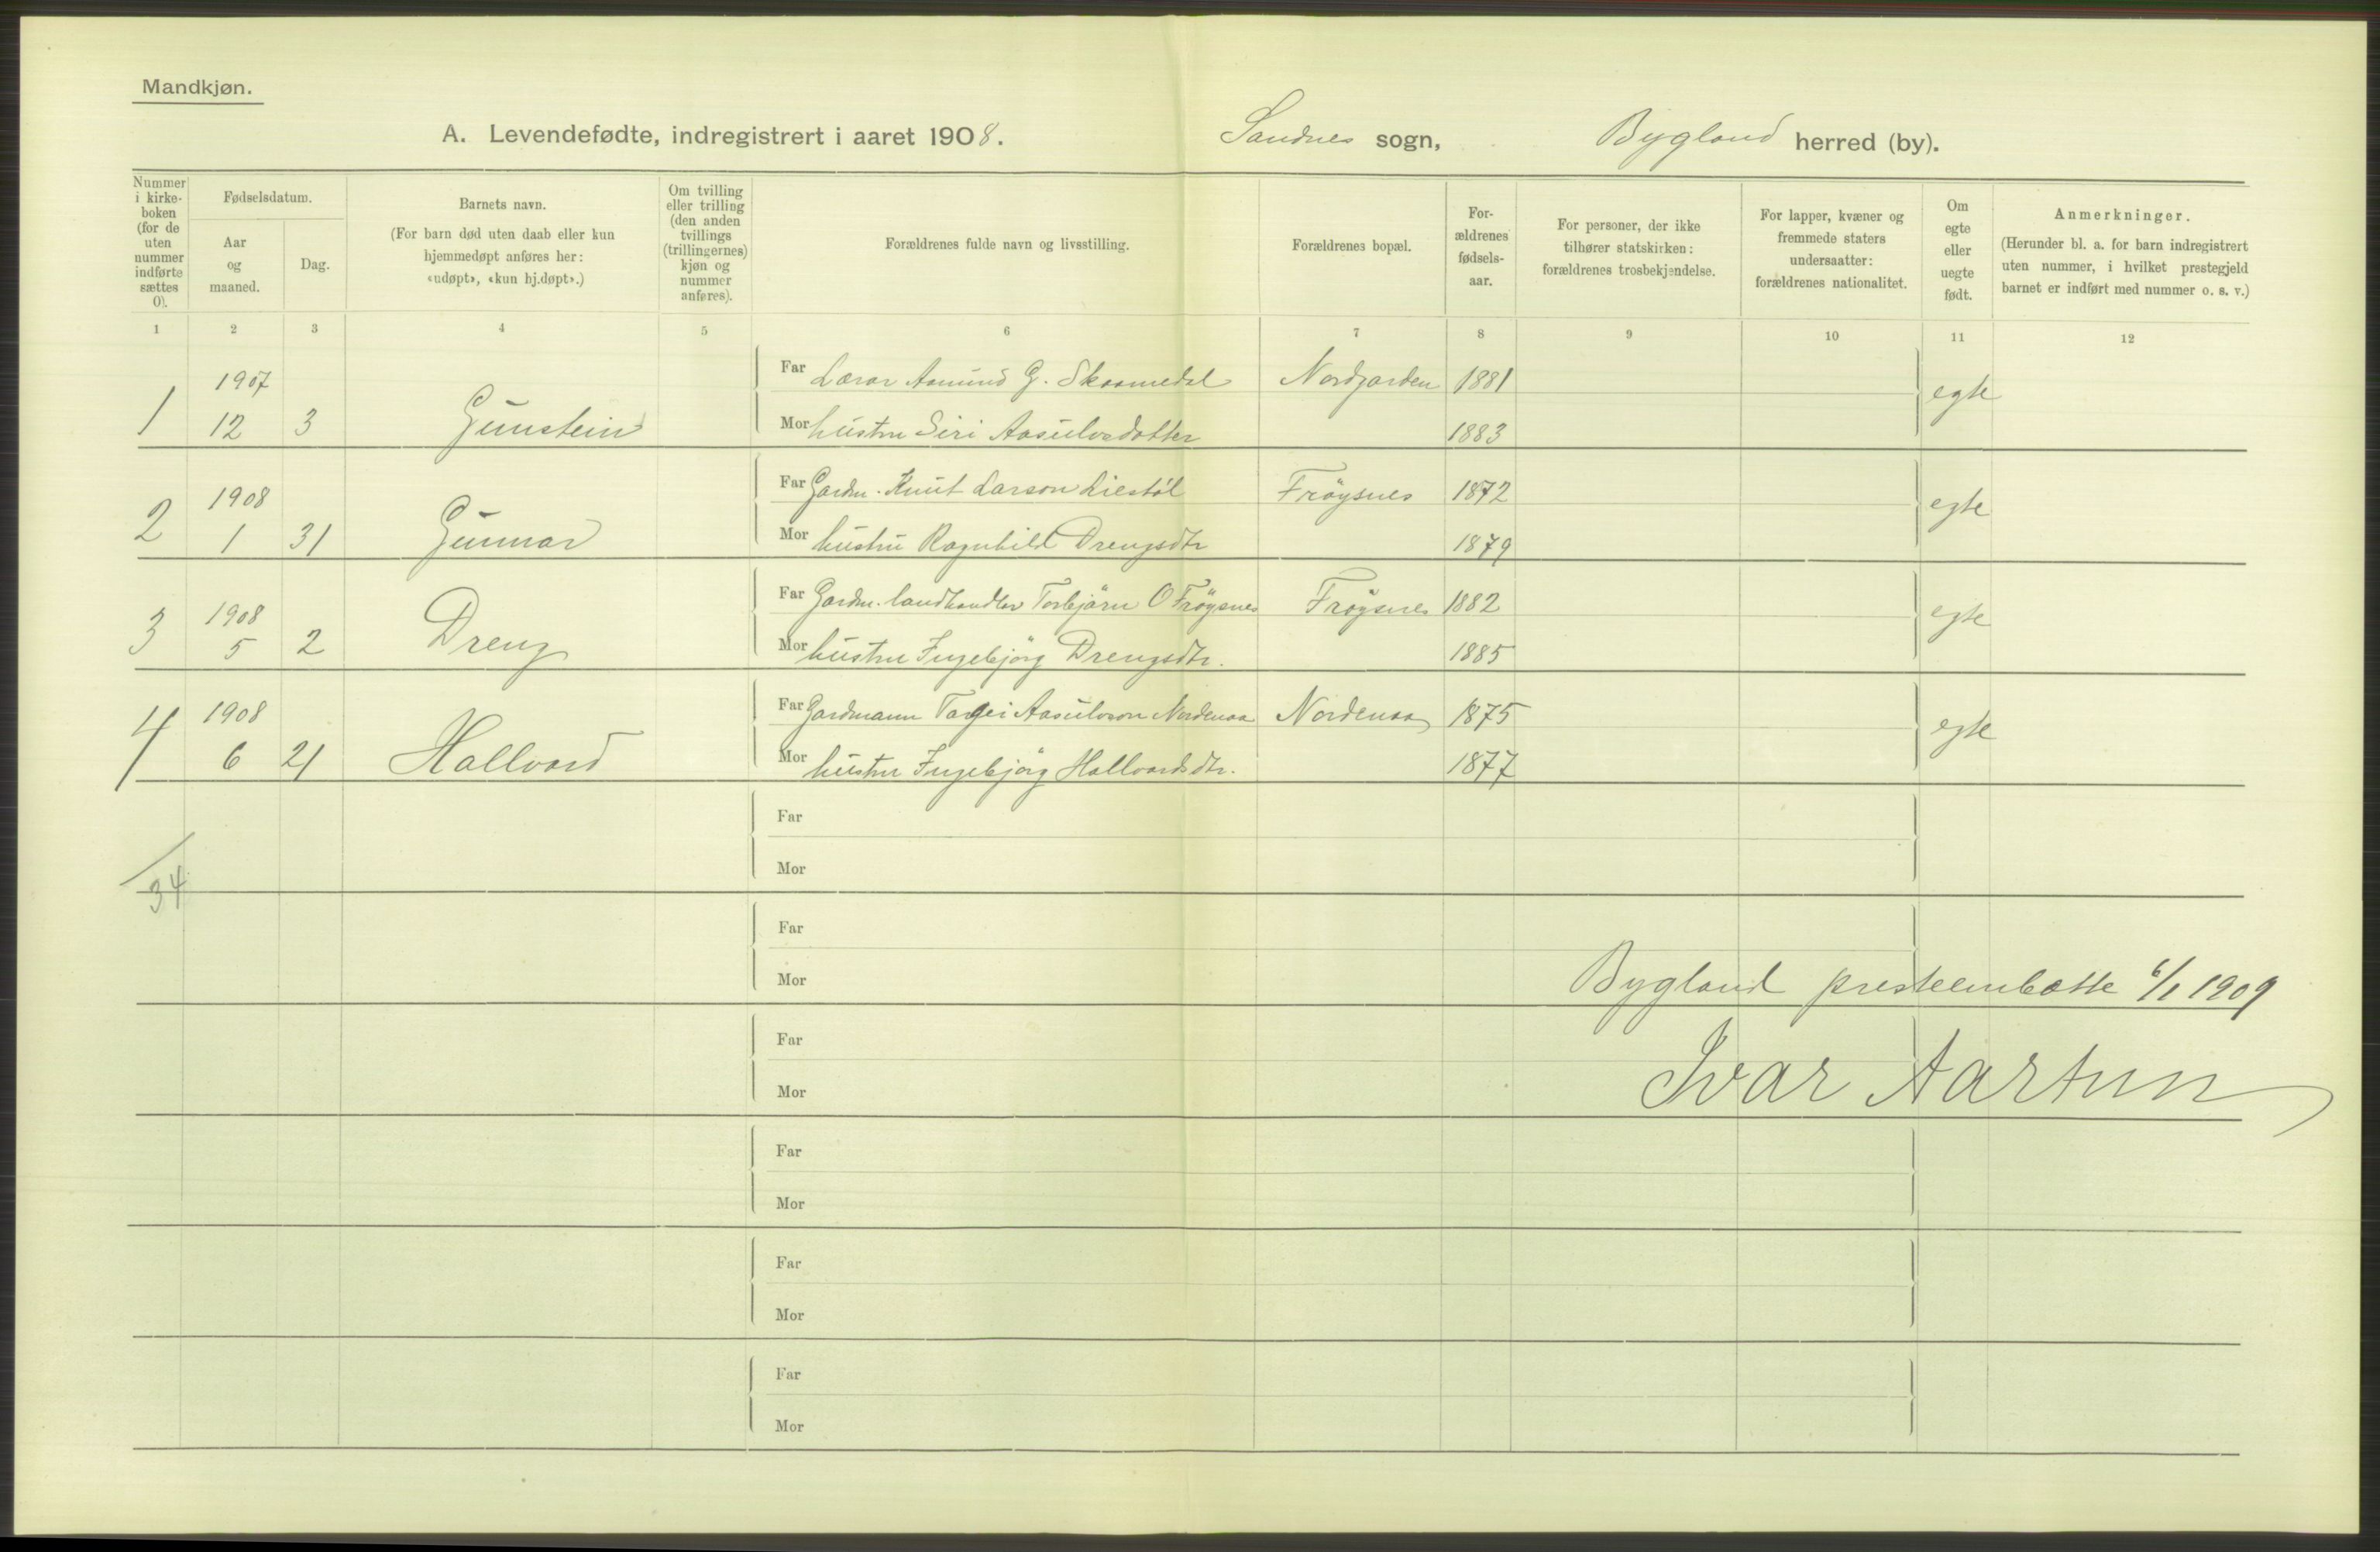 Mandkjøn.
A. Levendefødte, indregistrert i aaret 1908. Sandnes sogn, Bygland herred (by).
Nummer i kirkeboken (for de uten nummer indførte sættes 0).
Fødselsdatum.
Aar og maaned.
Dag.
Barnets navn.
(For barn død uten daab eller kun hjemmedøpt anføres her: «udøpt», «kun hj.døpt».)
Om tvilling eller trilling (den anden tvillings (trillingernes) kjøn og nummer anføres).
Forældrenes fulde navn og livsstilling.
Forældrenes bopæl.
Forældrenes fødselsaar.
For personer, der ikke tilhører statskirken: forældrenes trosbekjendelse.
For lapper, kvæner og fremmede staters undersaatter: forældrenes nationalitet.
Om egte eller uegte født.
Anmerkninger.
(Herunder bl. a. for barn indregistrert uten nummer, i hvilket prestegjeld barnet er indført med nummer o. s. v.)
1 2 3 4 5 6 7 8 9 10 11 12
1907 Far Lærar Aamund G. Skaamedal Nordgarden 1881 egte
1 12 3 Gunstein Mor hustru Siri Aasulvsdotter 1883
1908 Far Gardm. Knut Larson Liestöl Fröysnes 1872 egte
2 1 31 Gunnar Mor hustru Ragnhild Drengsdtr 1879
1908 Far Gardm. landhandlar Torbjörn O Fröysnes Fröysnes 1882 egte
3 5 2 Dreng Mor hustru Ingebjörg Drengsdtr. 1885
1908 Far Gardmann Targei Aasulvson Nordenaa Nordenaa 1875 egte
4 6 21 Hallvard Mor hustru Ingebjörg Hallvardsdtr. 1877
Far
Mor
34
Far
Mor
Bygland presteembætte 6/1 1909
Far
Ivar Aartun
Mor
Far
Mor
Far
Mor
Far
Mor